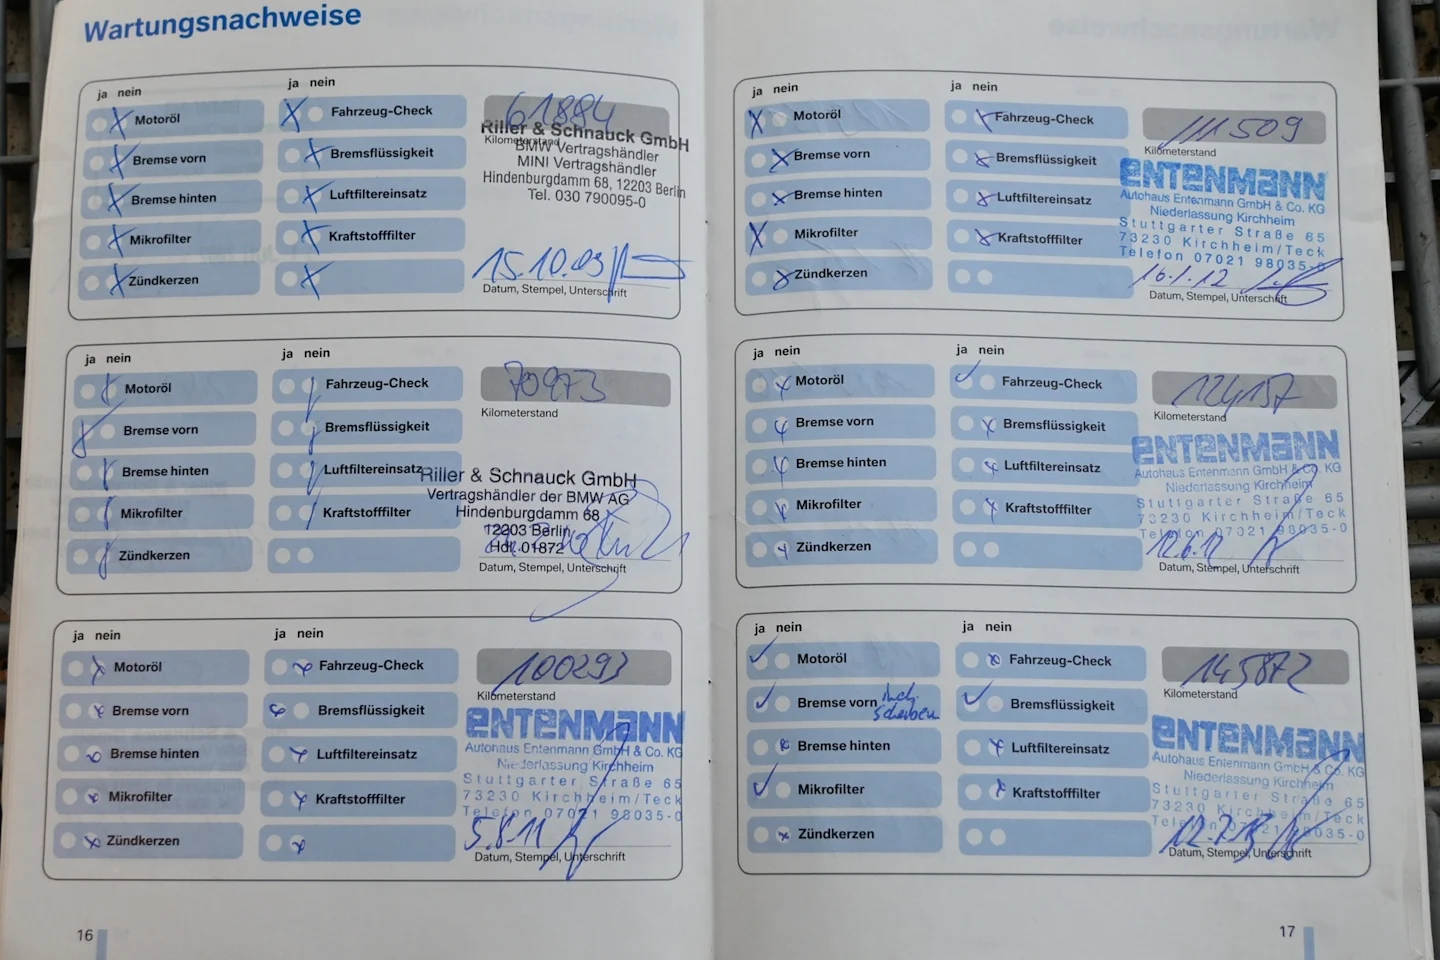 Wartungsnachweise
ja nein
ja nein
Motoröl
Bremse vorn
Bremse hinten
Mikrofilter
Zündkerzen
Fahrzeug-Check
Bremsflüssigkeit
Luftfiltereinsatz
Kraftstofffilter
61884
Kilometerstand
Riller & Schnauck GmbH
BMW Vertragshändler
MINI Vertragshändler
Hindenburgdamm 68, 12203 Berlin
Tel. 030 790095-0
15.10.09
Datum, Stempel, Unterschrift
ja nein
ja nein
Motoröl
Bremse vorn
Bremse hinten
Mikrofilter
Zündkerzen
Fahrzeug-Check
Bremsflüssigkeit
Luftfiltereinsatz
Kraftstofffilter
70973
Kilometerstand
Riller & Schnauck GmbH
Vertragshändler der BMW AG
Hindenburgdamm 68
12203 Berlin
Hdl. 01872
Datum, Stempel, Unterschrift
ja nein
ja nein
Motoröl
Bremse vorn
Bremse hinten
Mikrofilter
Zündkerzen
Fahrzeug-Check
Bremsflüssigkeit
Luftfiltereinsatz
Kraftstofffilter
100293
Kilometerstand
ENTENMANN
Autohaus Entenmann GmbH & Co. KG
Niederlassung Kirchheim
Stuttgarter Straße 65
73230 Kirchheim/Teck
Telefon 07021 98035-0
5.8.11
Datum, Stempel, Unterschrift
16
ja nein
ja nein
Motoröl
Bremse vorn
Bremse hinten
Mikrofilter
Zündkerzen
Fahrzeug-Check
Bremsflüssigkeit
Luftfiltereinsatz
Kraftstofffilter
111509
Kilometerstand
ENTENMANN
Autohaus Entenmann GmbH & Co. KG
Niederlassung Kirchheim
Stuttgarter Straße 65
73230 Kirchheim/Teck
Telefon 07021 98035-0
16.1.12
Datum, Stempel, Unterschrift
ja nein
ja nein
Motoröl
Bremse vorn
Bremse hinten
Mikrofilter
Zündkerzen
Fahrzeug-Check
Bremsflüssigkeit
Luftfiltereinsatz
Kraftstofffilter
124137
Kilometerstand
ENTENMANN
Autohaus Entenmann GmbH & Co. KG
Niederlassung Kirchheim
Stuttgarter Straße 65
73230 Kirchheim/Teck
Telefon 07021 98035-0
12.6.12
Datum, Stempel, Unterschrift
ja nein
ja nein
Motoröl
Bremse vorn incl.
Scheiben
Bremse hinten
Mikrofilter
Zündkerzen
Fahrzeug-Check
Bremsflüssigkeit
Luftfiltereinsatz
Kraftstofffilter
145872
Kilometerstand
ENTENMANN
Autohaus Entenmann GmbH & Co. KG
Niederlassung Kirchheim
Stuttgarter Straße 65
73230 Kirchheim/Teck
Telefon 07021 98035-0
12.7.13
Datum, Stempel, Unterschrift
17